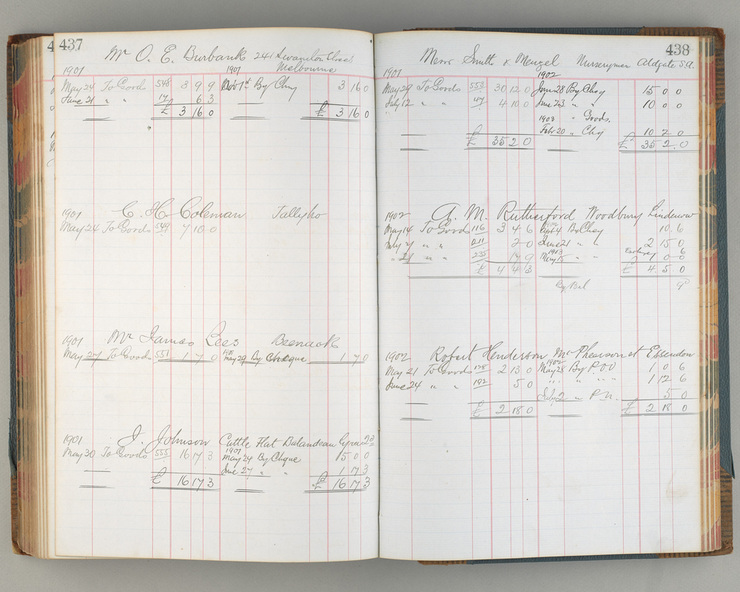 437
Mr O. E. Burbank 241 Swanston Street
Melbourne
1901 1901
May 24 To Goods 548 3 9 9 Nov 1st By Chq 3 16 0
June 21 " " 6 3
£ 3 16 0 £ 3 16 0
C. H. Coleman Tallyho
1901
May 24 To Goods 549 7 10 0
Mr James Lees Beenack
1901
May 27 To Goods 551 1 7 0 May 29 By Cheque 1 7 0
J. Johnson Cuttle Flat
1901 1901
May 30 To Goods 555 16 17 3 May 24 By Cheque 15 0 0
June 27 " 1 17 3
£ 16 17 3 £ 16 17 3
438
Messrs Smith & Menzel Nurserymen Aldgate S.A.
1901 1902
May 24 To Goods 552 30 12 0 Jan 28 By Chq 15 0 0
July 12 " " 4 10 0 June 23 " " 10 0 0
1903 " Goods
Feb 20 " Chq 10 2 0
£ 35 2 0 £ 35 2 0
A. M. Rutherford Woodbury Lindenow
1902
May 14 To Goods 116 3 4 6 By Chq 10 6
July 4 " " 2 0 June 21 " " 2 15 0
" 21 " " 17 9
£ 4 4 3 £ 4 5 0
By Bal 9
Robert Henderson McPherson St Essendon
1902 1902
May 21 To Goods 128 2 13 0 May 28 By P.O.O 1 0 6
June 24 " " 192 5 0 " " " 1 12 6
July 2 " P.N. 5 0
£ 2 18 0 £ 2 18 0